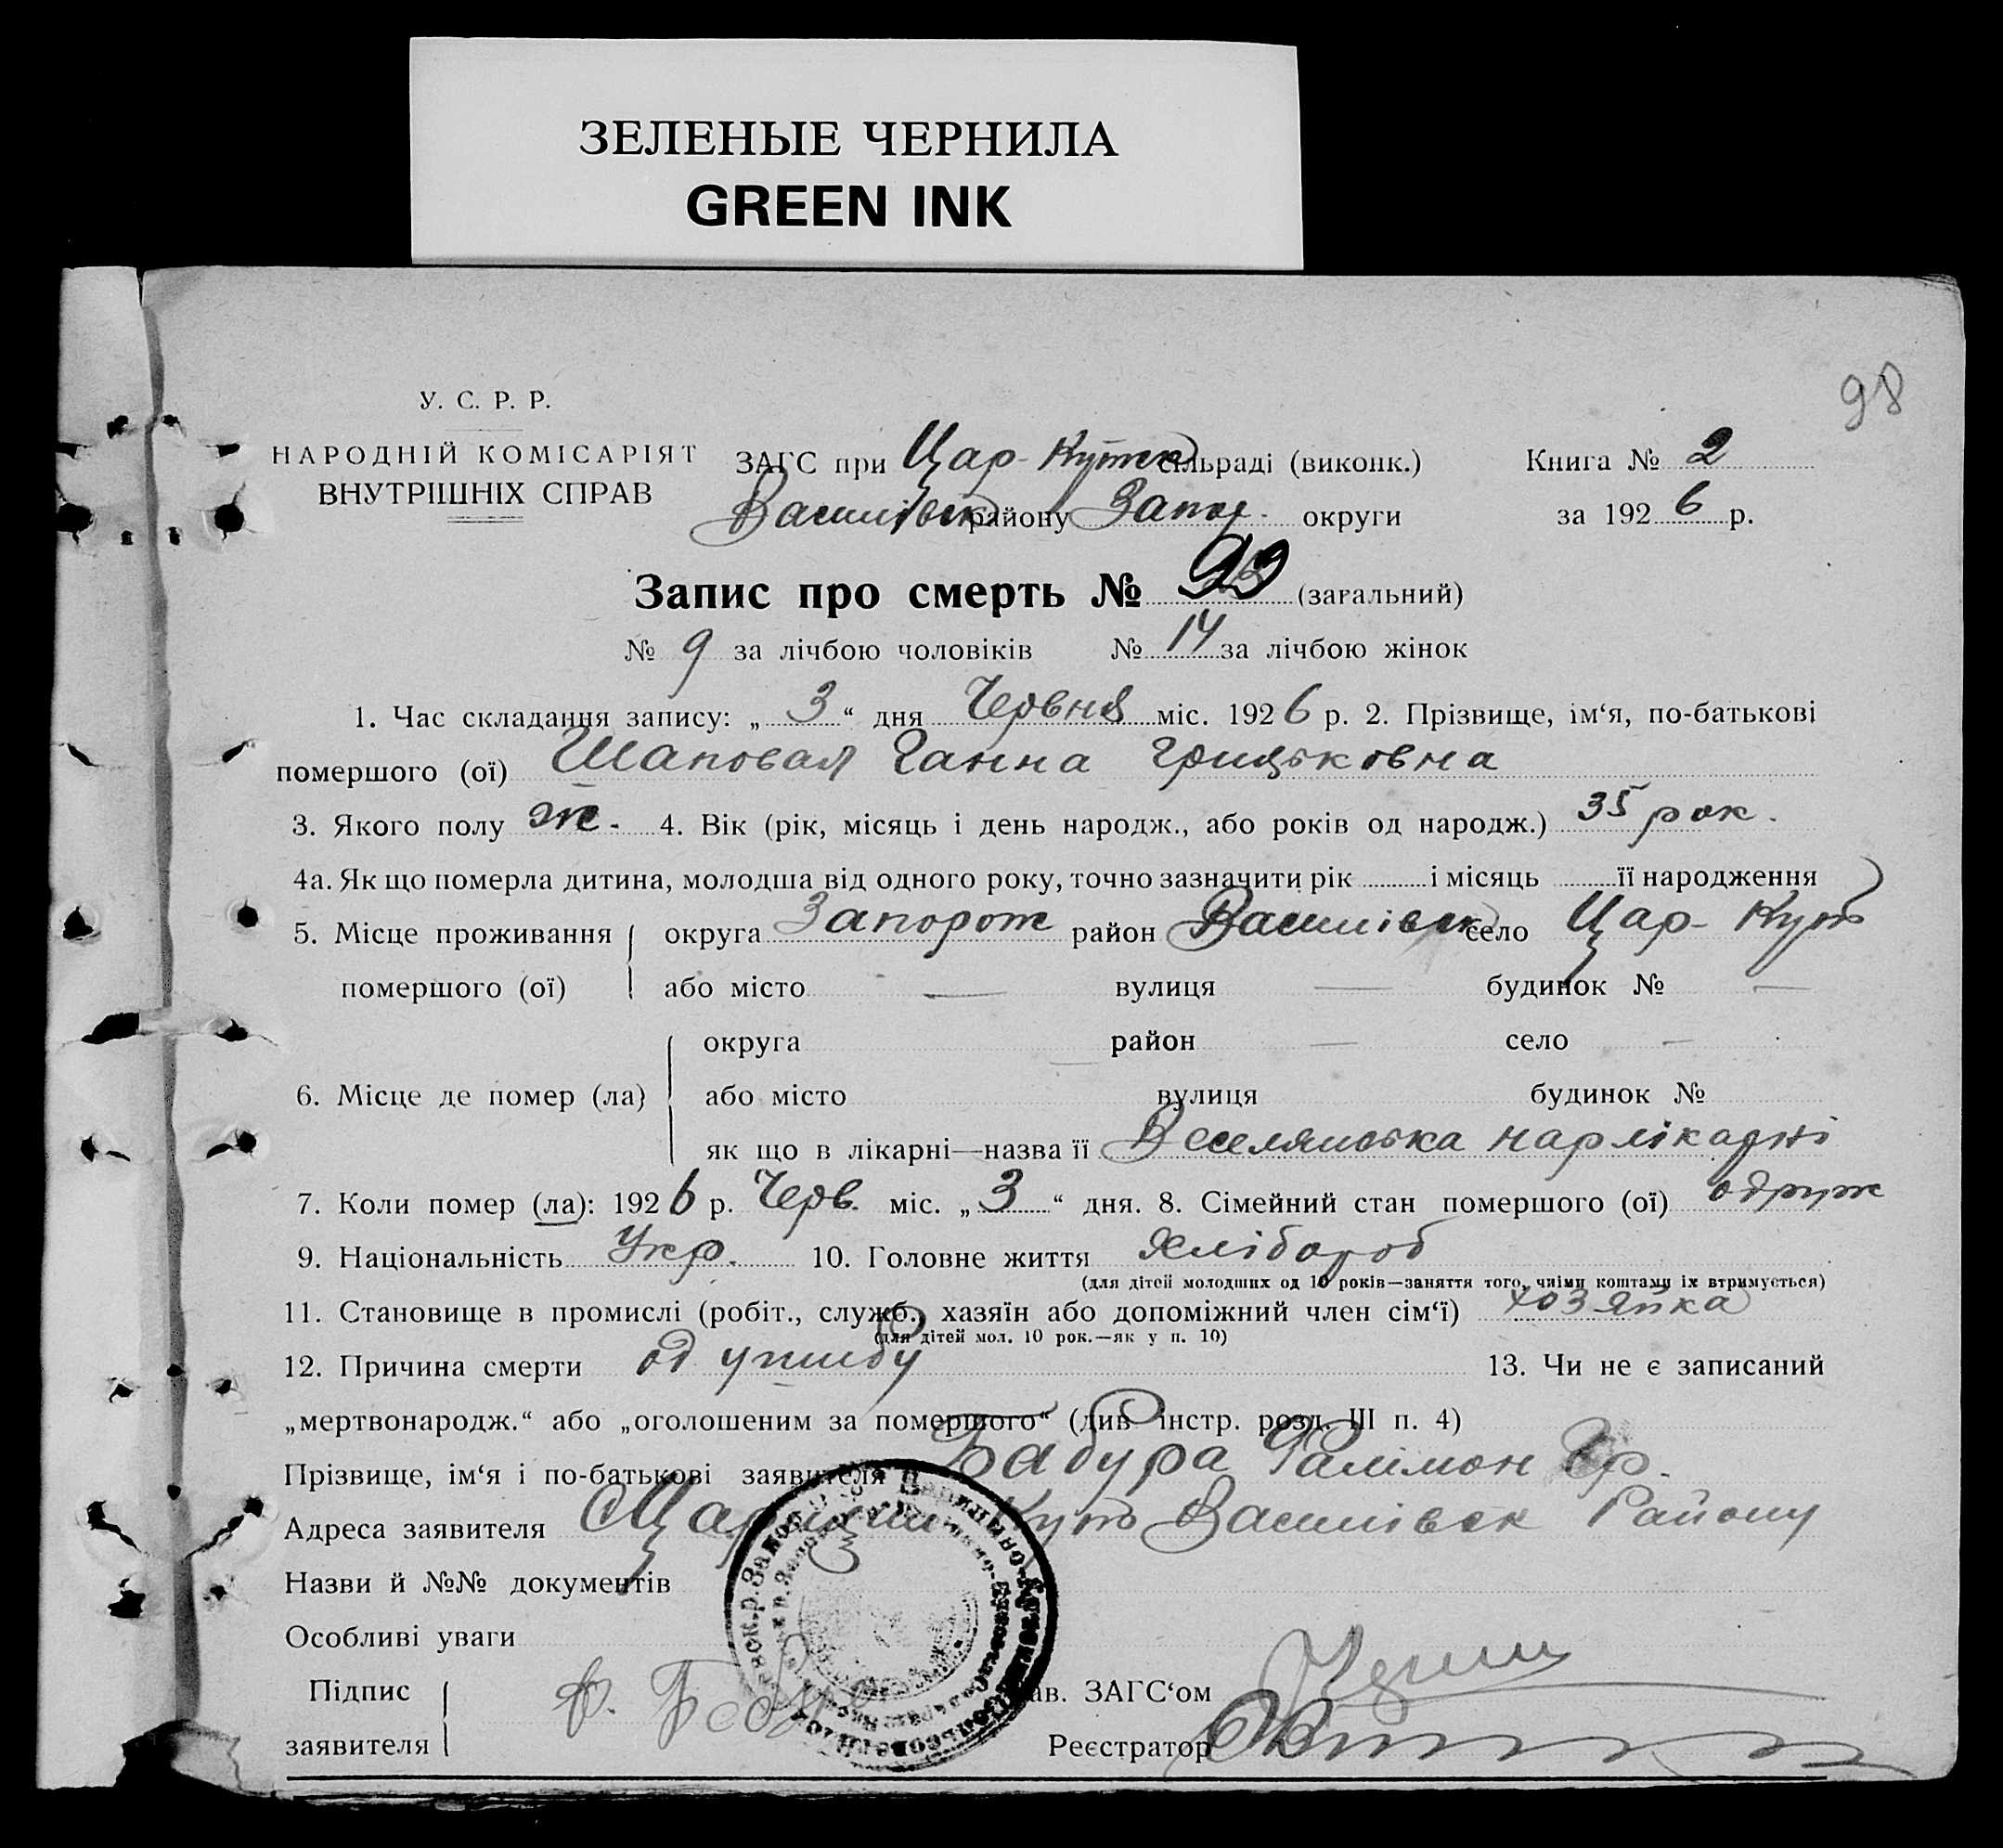 ЗЕЛЕНЫЕ ЧЕРНИЛА
GREEN INK
98
У. С. Р. Р.
НАРОДНІЙ КОМІСАРІЯТ
ВНУТРІШНІХ СПРАВ
ЗАГС при Цар-Кутск сільраді (виконк.)
Василівск району Запор. округи
Книга № 2
за 1926 р.
Запис про смерть № (загальний)
№ 9 за лічбою чоловіків № 14 за лічбою жінок
1. Час складання запису: „ 3 “ дня Червня міс. 1926 р. 2. Прізвище, ім‘я, по-батькові
помершого (ої) Шаповал Ганна Грицьковна
3. Якого полу ж. 4. Вік (рік, місяць і день народж., або років од народж.) 35 рок.
4а. Як що померла дитина, молодша від одного року, точно зазначити рік і місяць її народження
5. Місце проживання округа Запорож район Василівск село Цар-Кут
помершого (ої) або місто — вулиця — будинок № —
округа район — село —
6. Місце де помер (ла) або місто вулиця будинок №
як що в лікарні—назва її Веселянська нарлікарні
7. Коли помер (ла): 1926 р. Черв. міс. „ 3 “ дня. 8. Сімейний стан помершого (ої) одруж
9. Національність Укр. 10. Головне життя Хлібороб
(для дітей молодших од 10 років—заняття того, чиїми коштами їх втримується)
11. Становище в промислі (робіт., служб., хазяїн або допоміжний член сім‘ї) хозяйка
(для дітей мол. 10 рок.—як у п. 10)
12. Причина смерти од ушибу 13. Чи не є записаний
„мертвонародж.“ або „оголошеним за помершого“ (див інстр. розд. III п. 4)
Прізвище, ім‘я і по-батькові заявителя Бабура Филімон Гр.
Адреса заявителя Кут Василівск Району
Назви й №№ документів
Особливі уваги
Підпис
заявителя
Зав. ЗАГС‘ом
Реєстратор